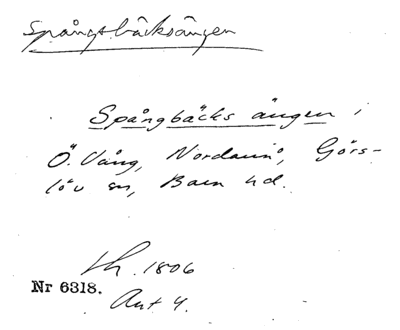 Spångsbäcksängen
Spångbäcks ängen i
Ö. Vång, Nordanå, Görs-
löv sn, Bara hd.
Lh. 1806
Nr 6318.
Akt 4.